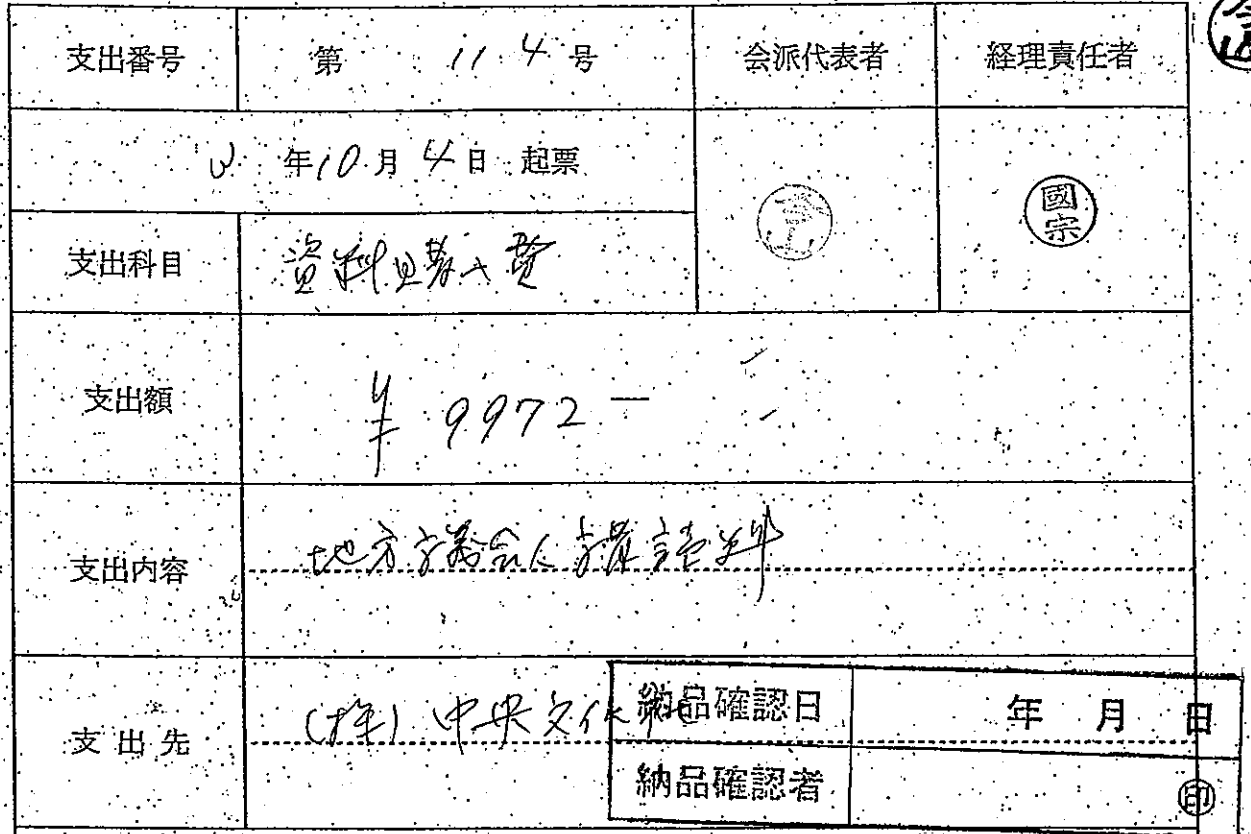 支出番号 第 114 号 会派代表者 経理責任者
3 年 10 月 4 日 起票
國宗
支出科目 資料購入費
支出額 ¥9972-
支出内容 地方議会人購読料
支出先 (株) 中央文化社
納品確認日 年 月 日
納品確認者 印